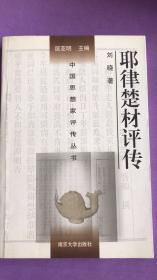 匡亚明 主编
耶律楚材评传
刘晓 著
中国思想家评传丛书
南京大学出版社